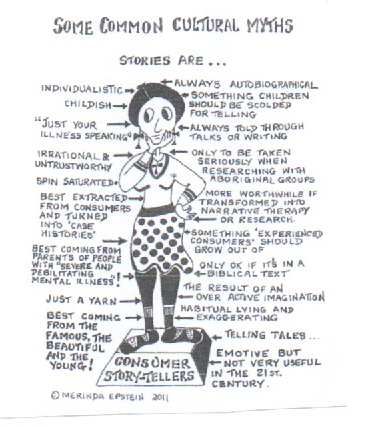 SOME COMMON CULTURAL MYTHS
STORIES ARE ...
INDIVIDUALISTIC
CHILDISH
"JUST YOUR
ILLNESS SPEAKING"
IRRATIONAL &
UNTRUSTWORTHY
SPIN SATURATED
BEST EXTRACTED
FROM CONSUMERS
AND TURNED
INTO 'CASE
HISTORIES'
BEST COMING FROM
PARENTS OF PEOPLE
WITH "SEVERE AND
DEBILITATING
MENTAL ILLNESS"!
JUST A YARN
BEST COMING
FROM THE
FAMOUS, THE
BEAUTIFUL
AND THE
YOUNG!
ALWAYS AUTOBIOGRAPHICAL
SOMETHING CHILDREN
SHOULD BE SCOLDED
FOR TELLING
ALWAYS TOLD THROUGH
TALKS OR WRITING
ONLY TO BE TAKEN
SERIOUSLY WHEN
RESEARCHING WITH
ABORIGINAL GROUPS
MORE WORTHWHILE IF
TRANSFORMED INTO
NARRATIVE THERAPY
OR RESEARCH.
SOMETHING 'EXPERIENCED
CONSUMERS' SHOULD
GROW OUT OF
ONLY OK IF IT'S IN A
BIBLICAL TEXT
THE RESULT OF AN
OVER ACTIVE IMAGINATION
HABITUAL LYING AND
EXAGGERATING
TELLING TALES...
EMOTIVE BUT
NOT VERY USEFUL
IN THE 21ST.
CENTURY.
CONSUMER
STORY-TELLERS
© MERINDA EPSTEIN 2011